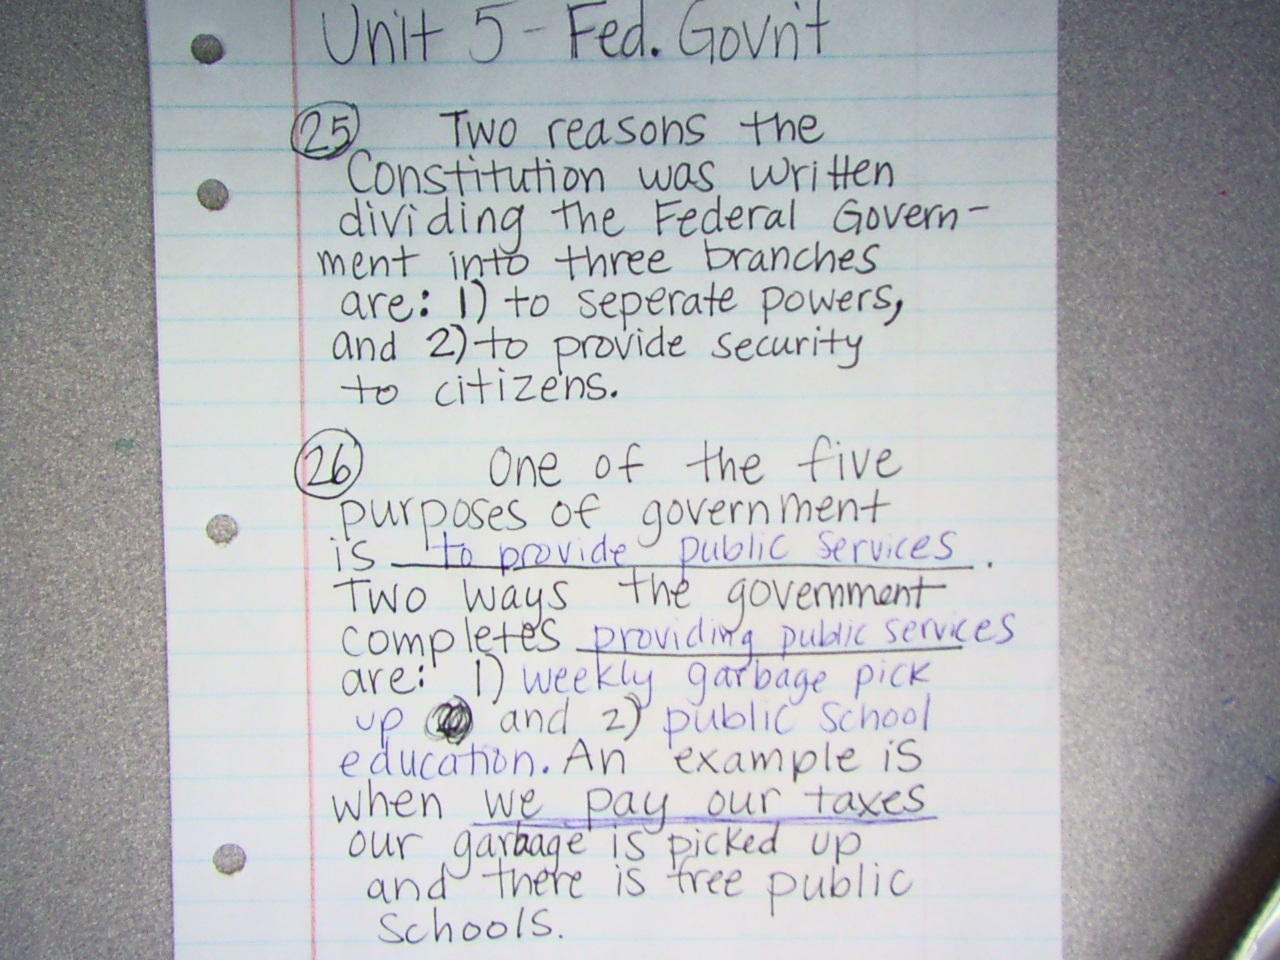 Unit 5 - Fed. Govn't
25 Two reasons the
Constitution was written
dividing the Federal Govern-
ment into three branches
are: 1) to seperate powers,
and 2) to provide security
to citizens.
26 One of the five
purposes of government
is to provide public services.
Two ways the government
completes providing public services
are: 1) weekly garbage pick
up and 2) public school
education. An example is
when we pay our taxes
our garbage is picked up
and there is free public
schools.